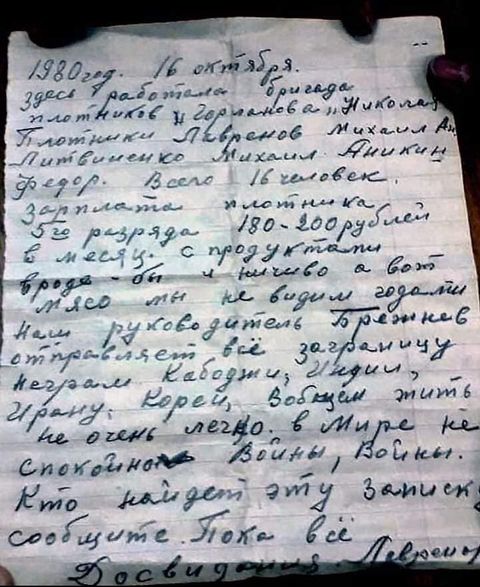 1980 год. 16 октября.
Здесь работала бригада
плотников „Горланова„ Николая
Плотники Лавренов Михаил Ан.
Литвиненко Михаил Аникин
Федор. Всего 16 человек.
Зарплата плотника
5го разряда 180-200 рублей
в месяц. с продуктами
вроде-бы и ничиво а вот
мясо мы не видим годами
наш руководитель Брежнев
отправляет всё заграницу
неграм Кабоджи, Индии,
Ирану. Кореи, Вобщем жить
не очень легко. в Мире не
спокойно Войны, Войны.
Кто найдет эту записку
сообщите. Пока всё
Досвидания. Лавренов